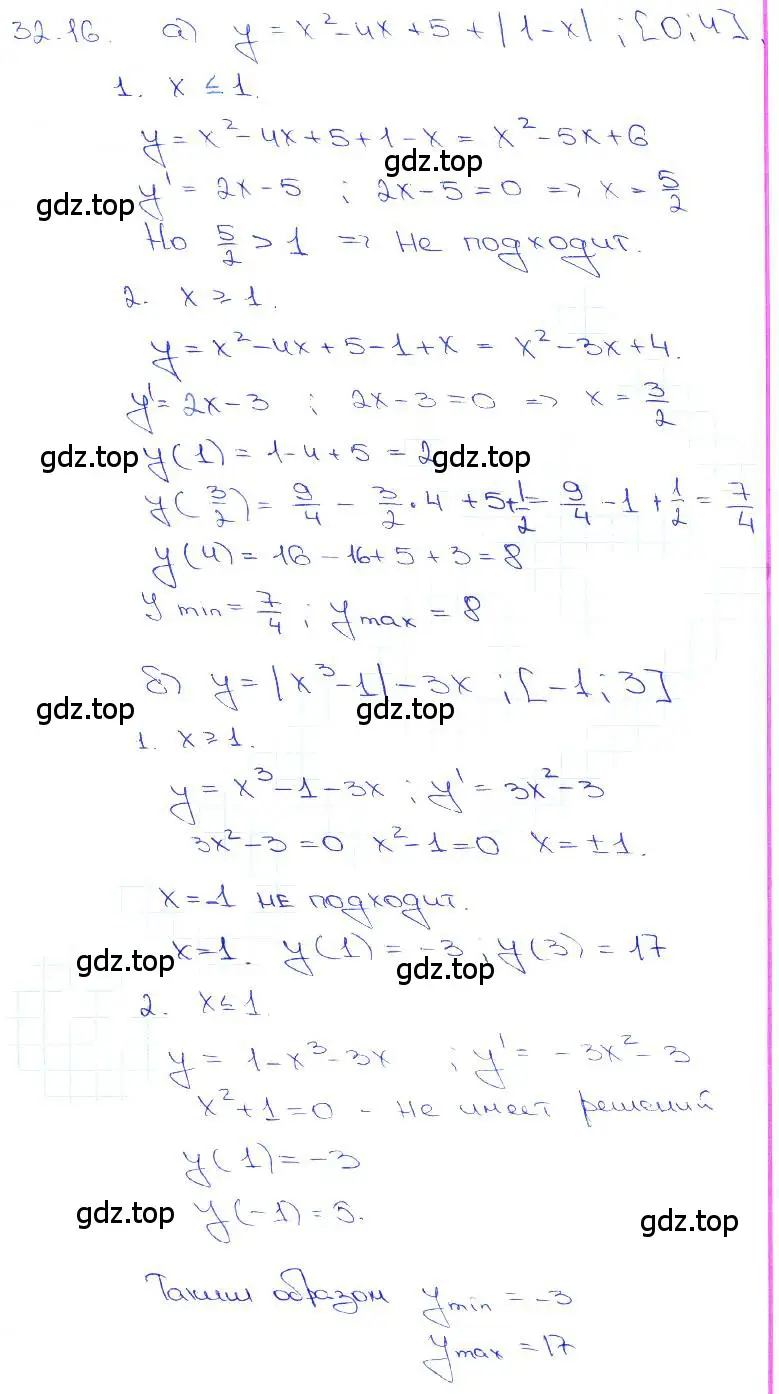 32.16. а) y = x² - 4x + 5 + |1-x| ; [0;4].
1. x ≤ 1.
y = x² - 4x + 5 + 1 - x = x² - 5x + 6
gdz.top
gdz.top y' = 2x - 5 ; 2x - 5 = 0 => x = 5/2
Но 5/2 > 1 => не подходит.
2. x ≥ 1.
y = x² - 4x + 5 - 1 + x = x² - 3x + 4.
y' = 2x - 3 ; 2x - 3 = 0 => x = 3/2
gdz.top y(1) = 1 - 4 + 5 = 2 gdz.top
y(3/2) = 9/4 - 3/2 · 4 + 5 + 1/2 = 9/4 - 1 + 1/2 = 7/4
y(4) = 16 - 16 + 5 + 3 = 8
y min = 7/4 ; y max = 8
б) y = |x³ - 1| - 3x ; [-1; 3]
gdz.top gdz.top
1. x ≥ 1.
y = x³ - 1 - 3x ; y' = 3x² - 3
3x² - 3 = 0 x² - 1 = 0 x = ±1.
x = -1 не подходит.
gdz.top x = 1. y(1) = -3 ; y(3) = 17
gdz.top
2. x ≤ 1.
y = 1 - x³ - 3x ; y' = -3x² - 3
x² + 1 = 0 - не имеет решений
y(1) = -3
gdz.top y(-1) = 5. gdz.top
Таким образом y min = -3
y max = 17